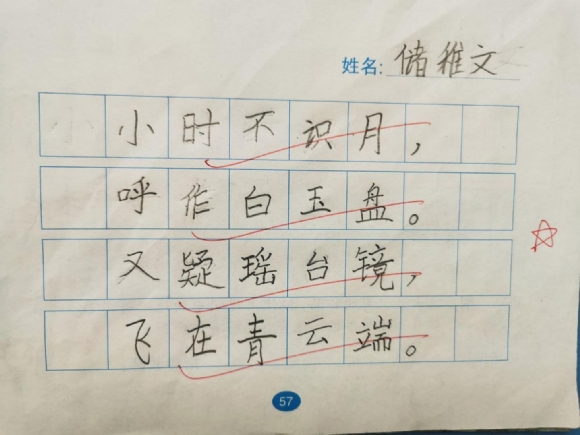 姓名: 储稚文
小时不识月,
呼作白玉盘。
又疑瑶台镜,
飞在青云端。
57